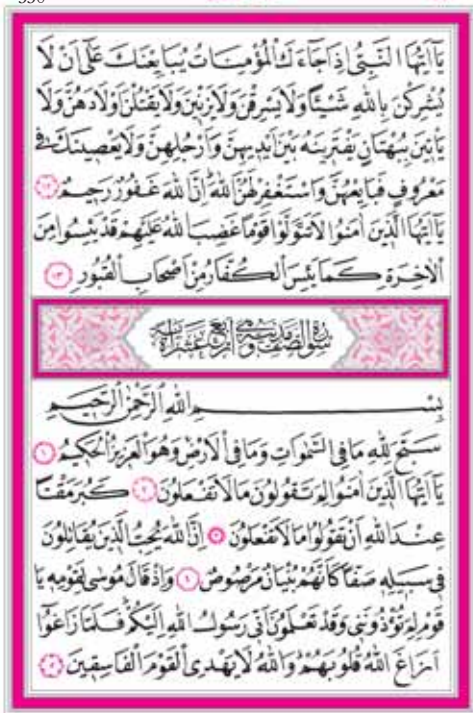 550
يَٓا اَيُّهَا النَّبِيُّ اِذَا جَٓاءَكَ الْمُؤْمِنَاتُ يُبَايِعْنَكَ عَلٰٓى اَنْ لَا
يُشْرِكْنَ بِاللّٰهِ شَيْـًٔا وَلَا يَسْرِقْنَ وَلَا يَزْنٖينَ وَلَا يَقْتُلْنَ اَوْلَادَهُنَّ وَلَا
يَاْتٖينَ بِبُهْتَانٍ يَفْتَرٖينَهُ بَيْنَ اَيْدٖيهِنَّ وَاَرْجُلِهِنَّ وَلَا يَعْصٖينَكَ فٖى
مَعْرُوفٍ فَبَايِعْهُنَّ وَاسْتَغْفِرْ لَهُنَّ اللّٰهَ اِنَّ اللّٰهَ غَفُورٌ رَحٖيمٌ ١٢
يَٓا اَيُّهَا الَّذٖينَ اٰمَنُوا لَا تَتَوَلَّوْا قَوْمًا غَضِبَ اللّٰهُ عَلَيْهِمْ قَدْ يَئِسُوا مِنَ
الْاٰخِرَةِ كَمَا يَئِسَ الْكُفَّارُ مِنْ اَصْحَابِ الْقُبُورِ ١٣
سُورَةُ الصَّفِّ مَدَنِيَّةٌ وَهِيَ اَرْبَعَ عَشْرَةَ اٰيَةً
بِسْمِ اللّٰهِ الرَّحْمٰنِ الرَّحٖيمِ
سَبَّحَ لِلّٰهِ مَا فِى السَّمٰوَاتِ وَمَا فِى الْاَرْضِ وَهُوَ الْعَزٖيزُ الْحَكٖيمُ ١
يَٓا اَيُّهَا الَّذٖينَ اٰمَنُوا لِمَ تَقُولُونَ مَا لَا تَفْعَلُونَ ٢ كَبُرَ مَقْتًا
عِنْدَ اللّٰهِ اَنْ تَقُولُوا مَا لَا تَفْعَلُونَ ٣ اِنَّ اللّٰهَ يُحِبُّ الَّذٖينَ يُقَاتِلُونَ
فٖى سَبٖيلِهٖ صَفًّا كَاَنَّهُمْ بُنْيَانٌ مَرْصُوصٌ ٤ وَاِذْ قَالَ مُوسٰى لِقَوْمِهٖ يَا
قَوْمِ لِمَ تُؤْذُونَنٖى وَقَدْ تَعْلَمُونَ اَنّٖى رَسُولُ اللّٰهِ اِلَيْكُمْ فَلَمَّا زَاغُٓوا
اَزَاغَ اللّٰهُ قُلُوبَهُمْ وَاللّٰهُ لَا يَهْدِى الْقَوْمَ الْفَاسِقٖينَ ٥